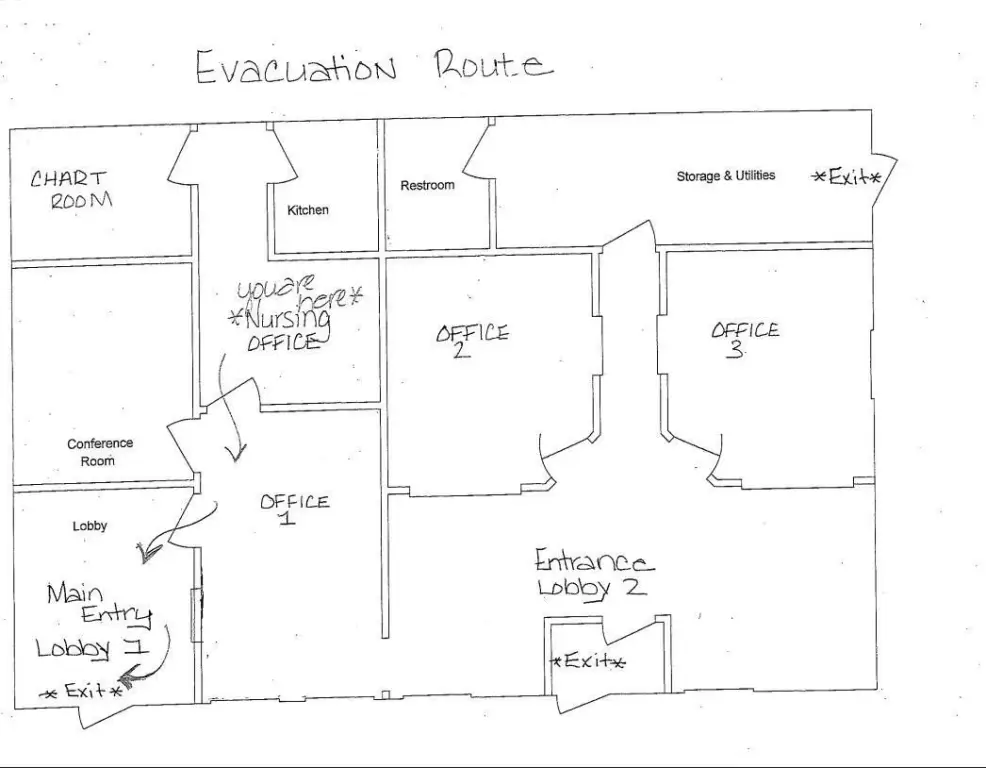 Evacuation Route
CHART
ROOM
Kitchen
Restroom
Storage & Utilities
*Exit*
you are
here*
*Nursing
OFFICE
OFFICE
2
OFFICE
3
Conference
Room
Lobby
OFFICE
1
Main
Entry
Lobby 1
*Exit*
Entrance
Lobby 2
*Exit*